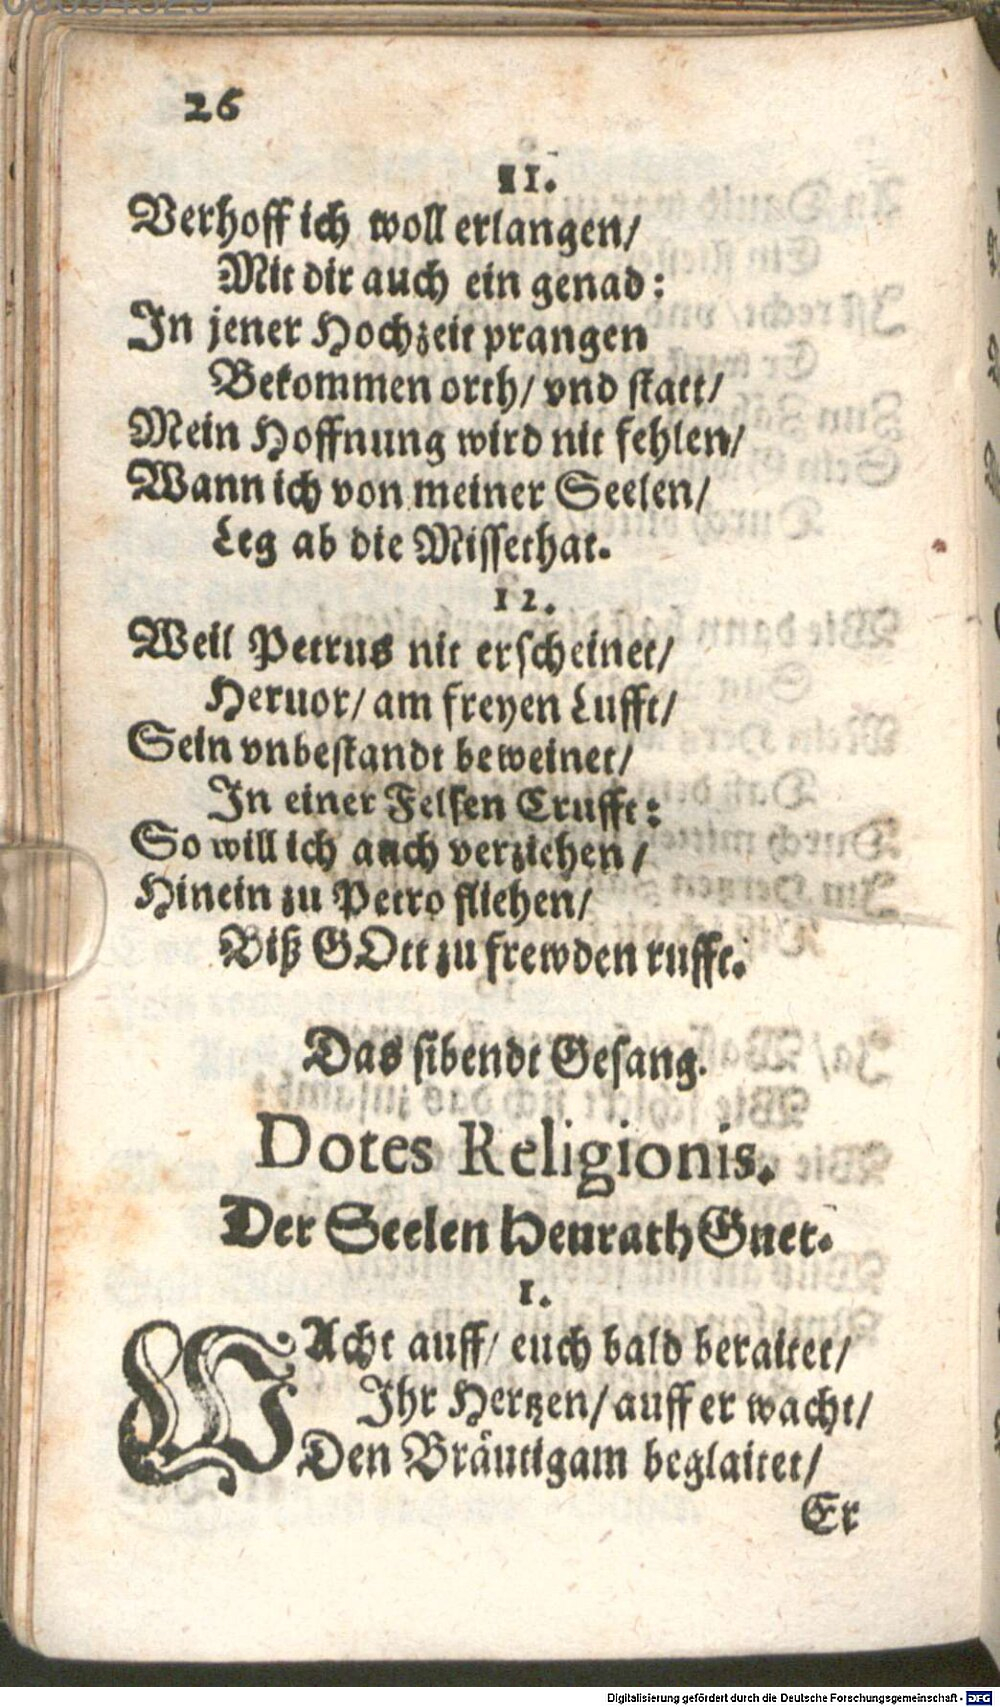 26
11.
Verhoff ich woll erlangen/
Mit dir auch ein genad:
In jener Hochzeit prangen
Bekommen orth/ vnd statt/
Mein Hoffnung wird nit fehlen/
Wann ich von meiner Seelen/
Leg ab die Missethat.
12.
Weil Petrus nit erscheinet/
Heruor/ am freyen Lufft/
Sein vnbestandt beweinet/
In einer Felsen Crufft:
So will ich auch verziehen/
Hinein zu Petro fliehen/
Biß GOtt zu frewden rufft.
Das sibendt Gesang.
Dotes Religionis.
Der Seelen Heurath Guet.
1.
WAcht auff/ euch bald beraitet/
Ihr Hertzen/ auff er wacht/
Den Bräutigam beglaitet/
Er
Digitalisierung gefördert durch die Deutsche Forschungsgemeinschaft - DFG